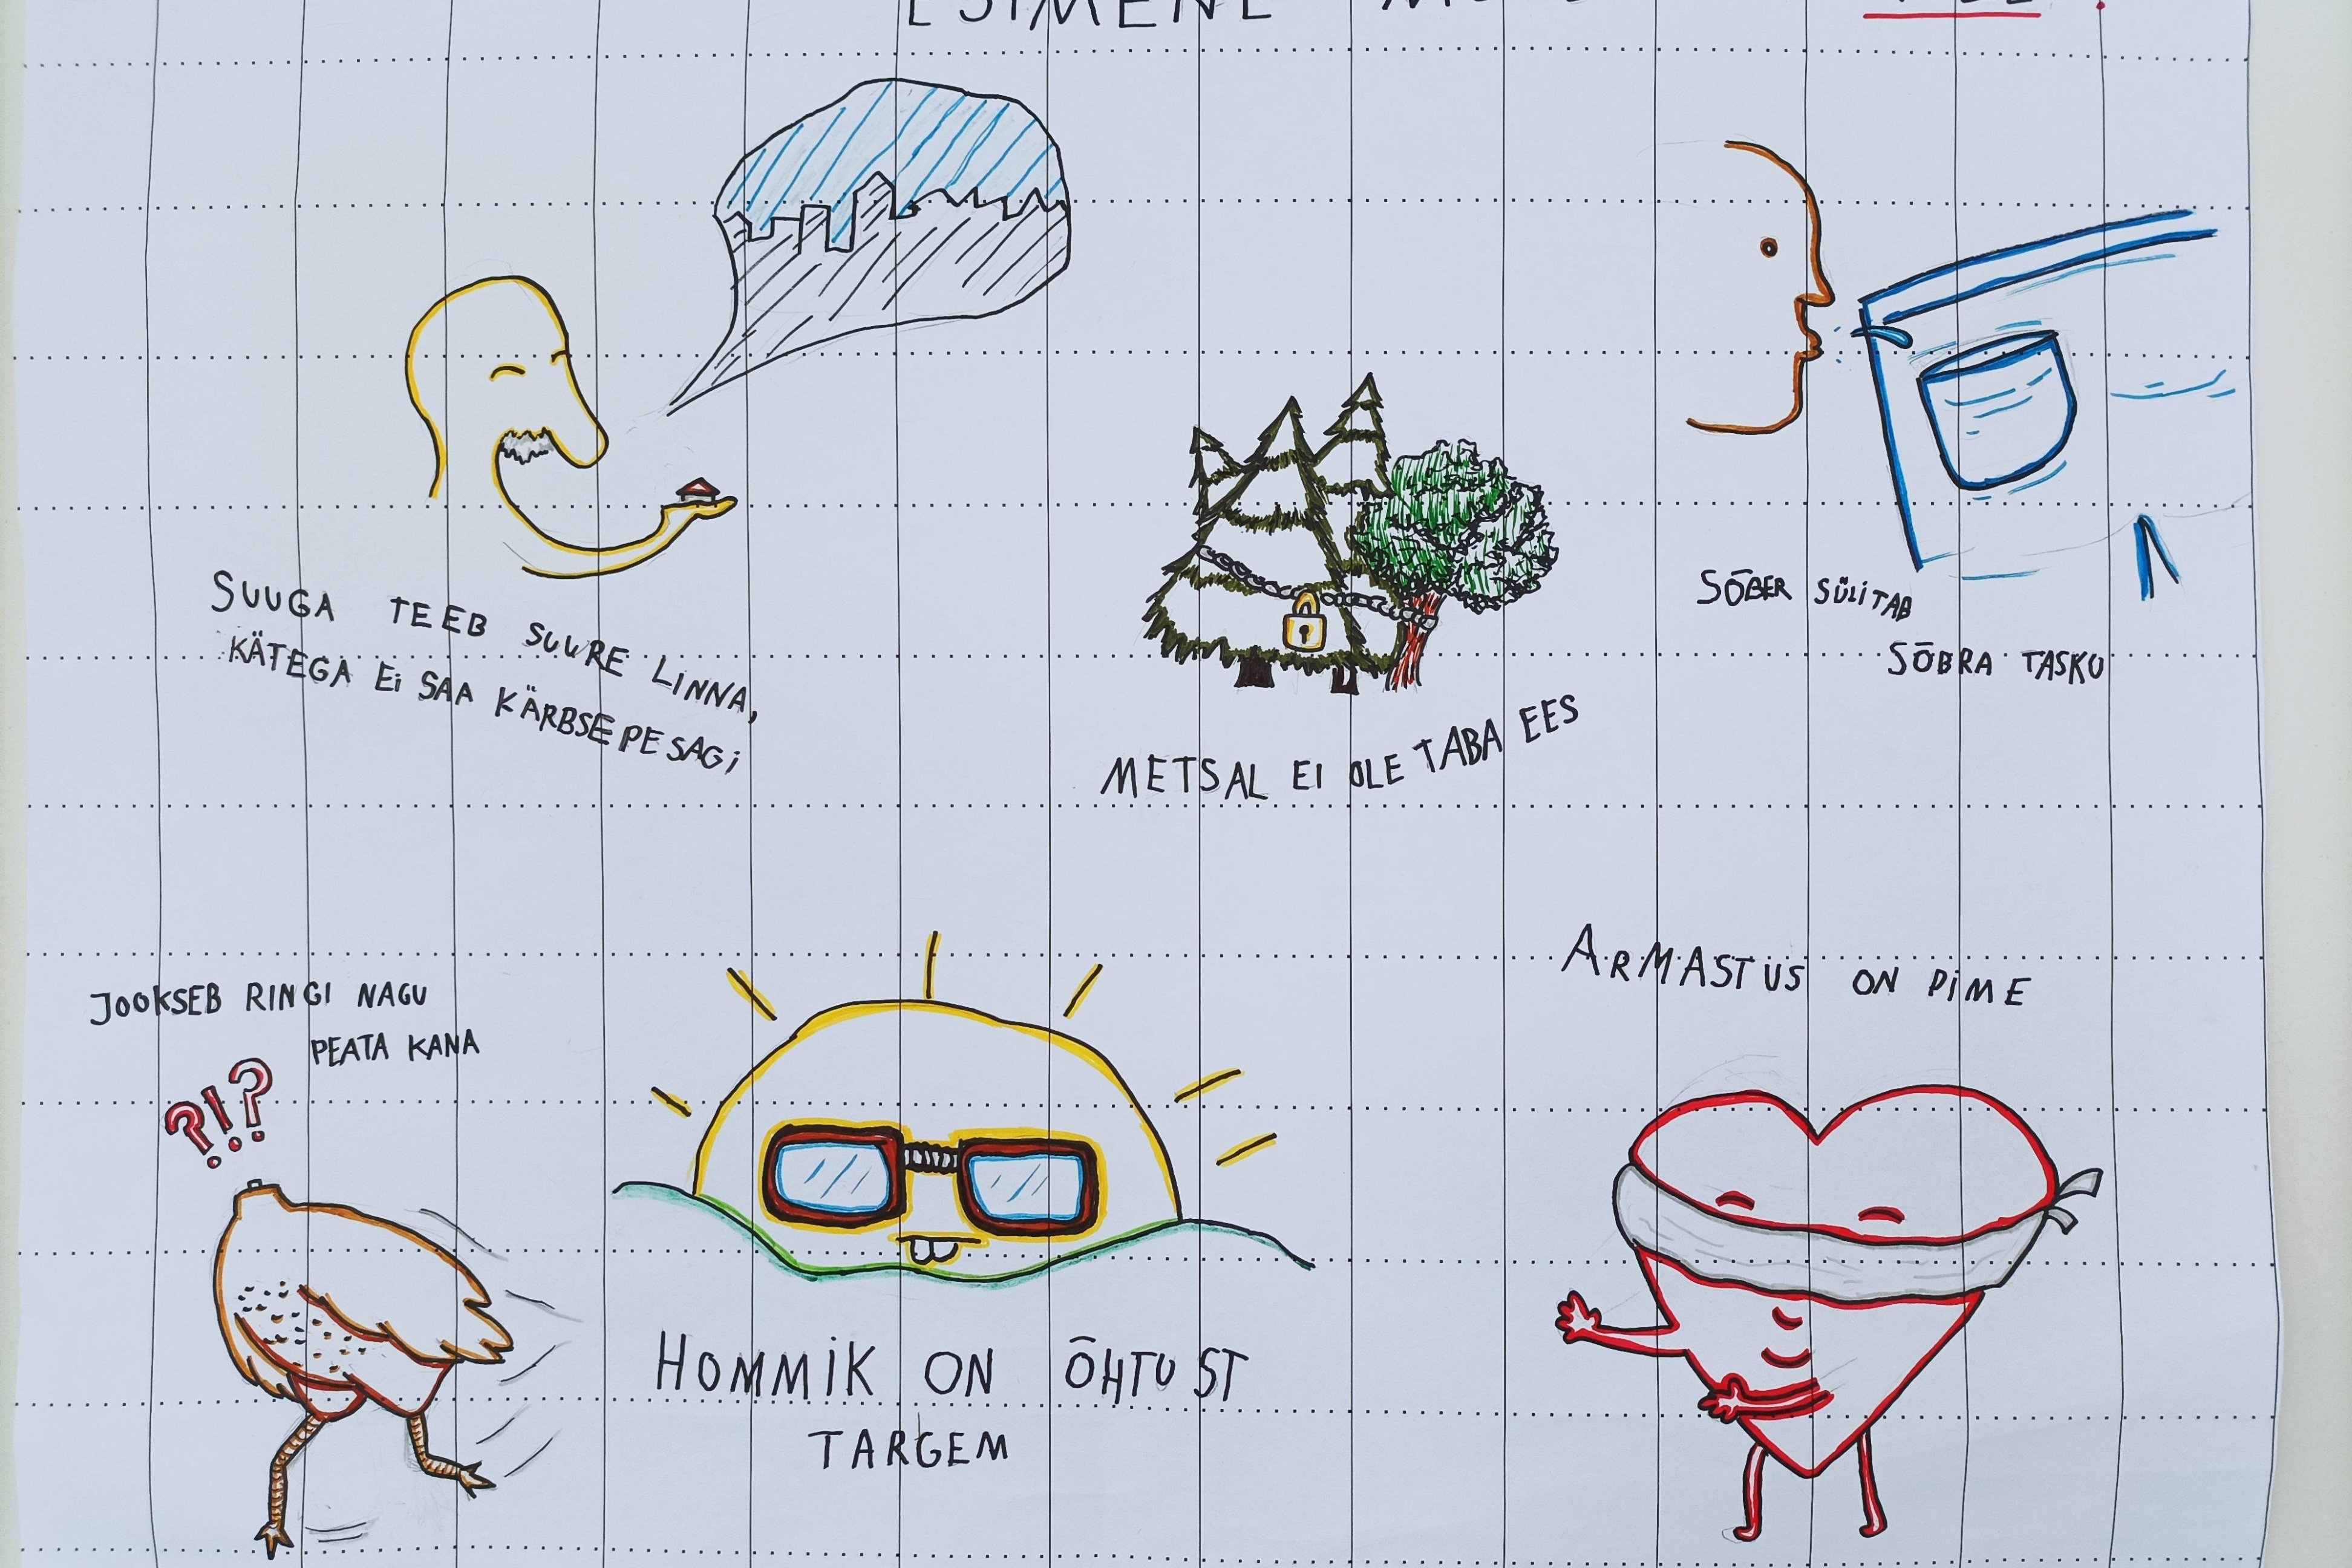 ESIMENE
SUUGA TEEB SUURE LINNA,
KÄTEGA Ei SAA KÄRBSEPESAGi
METSAL EI OLE TABA EES
SÕBER SÜLiTAB
SÕBRA TASKU
JOOKSEB RINGI NAGU
PEATA KANA
?!?
HOMMiK ON ÕHTUST
TARGEM
ARMASTUS ON PiME